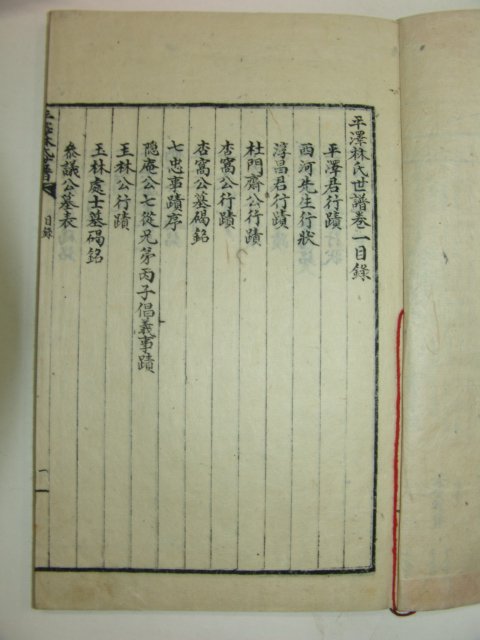 平澤林氏世譜卷一目錄
平澤君行蹟
西河先生行狀
淳昌君行蹟
杜門齋公行蹟
杏窩公行蹟
杏窩公墓碣銘
七忠事蹟序
隱庵公七從兄弟丙子倡義事蹟
玉林公行蹟
玉林處士墓碣銘
叅議公墓表
目錄